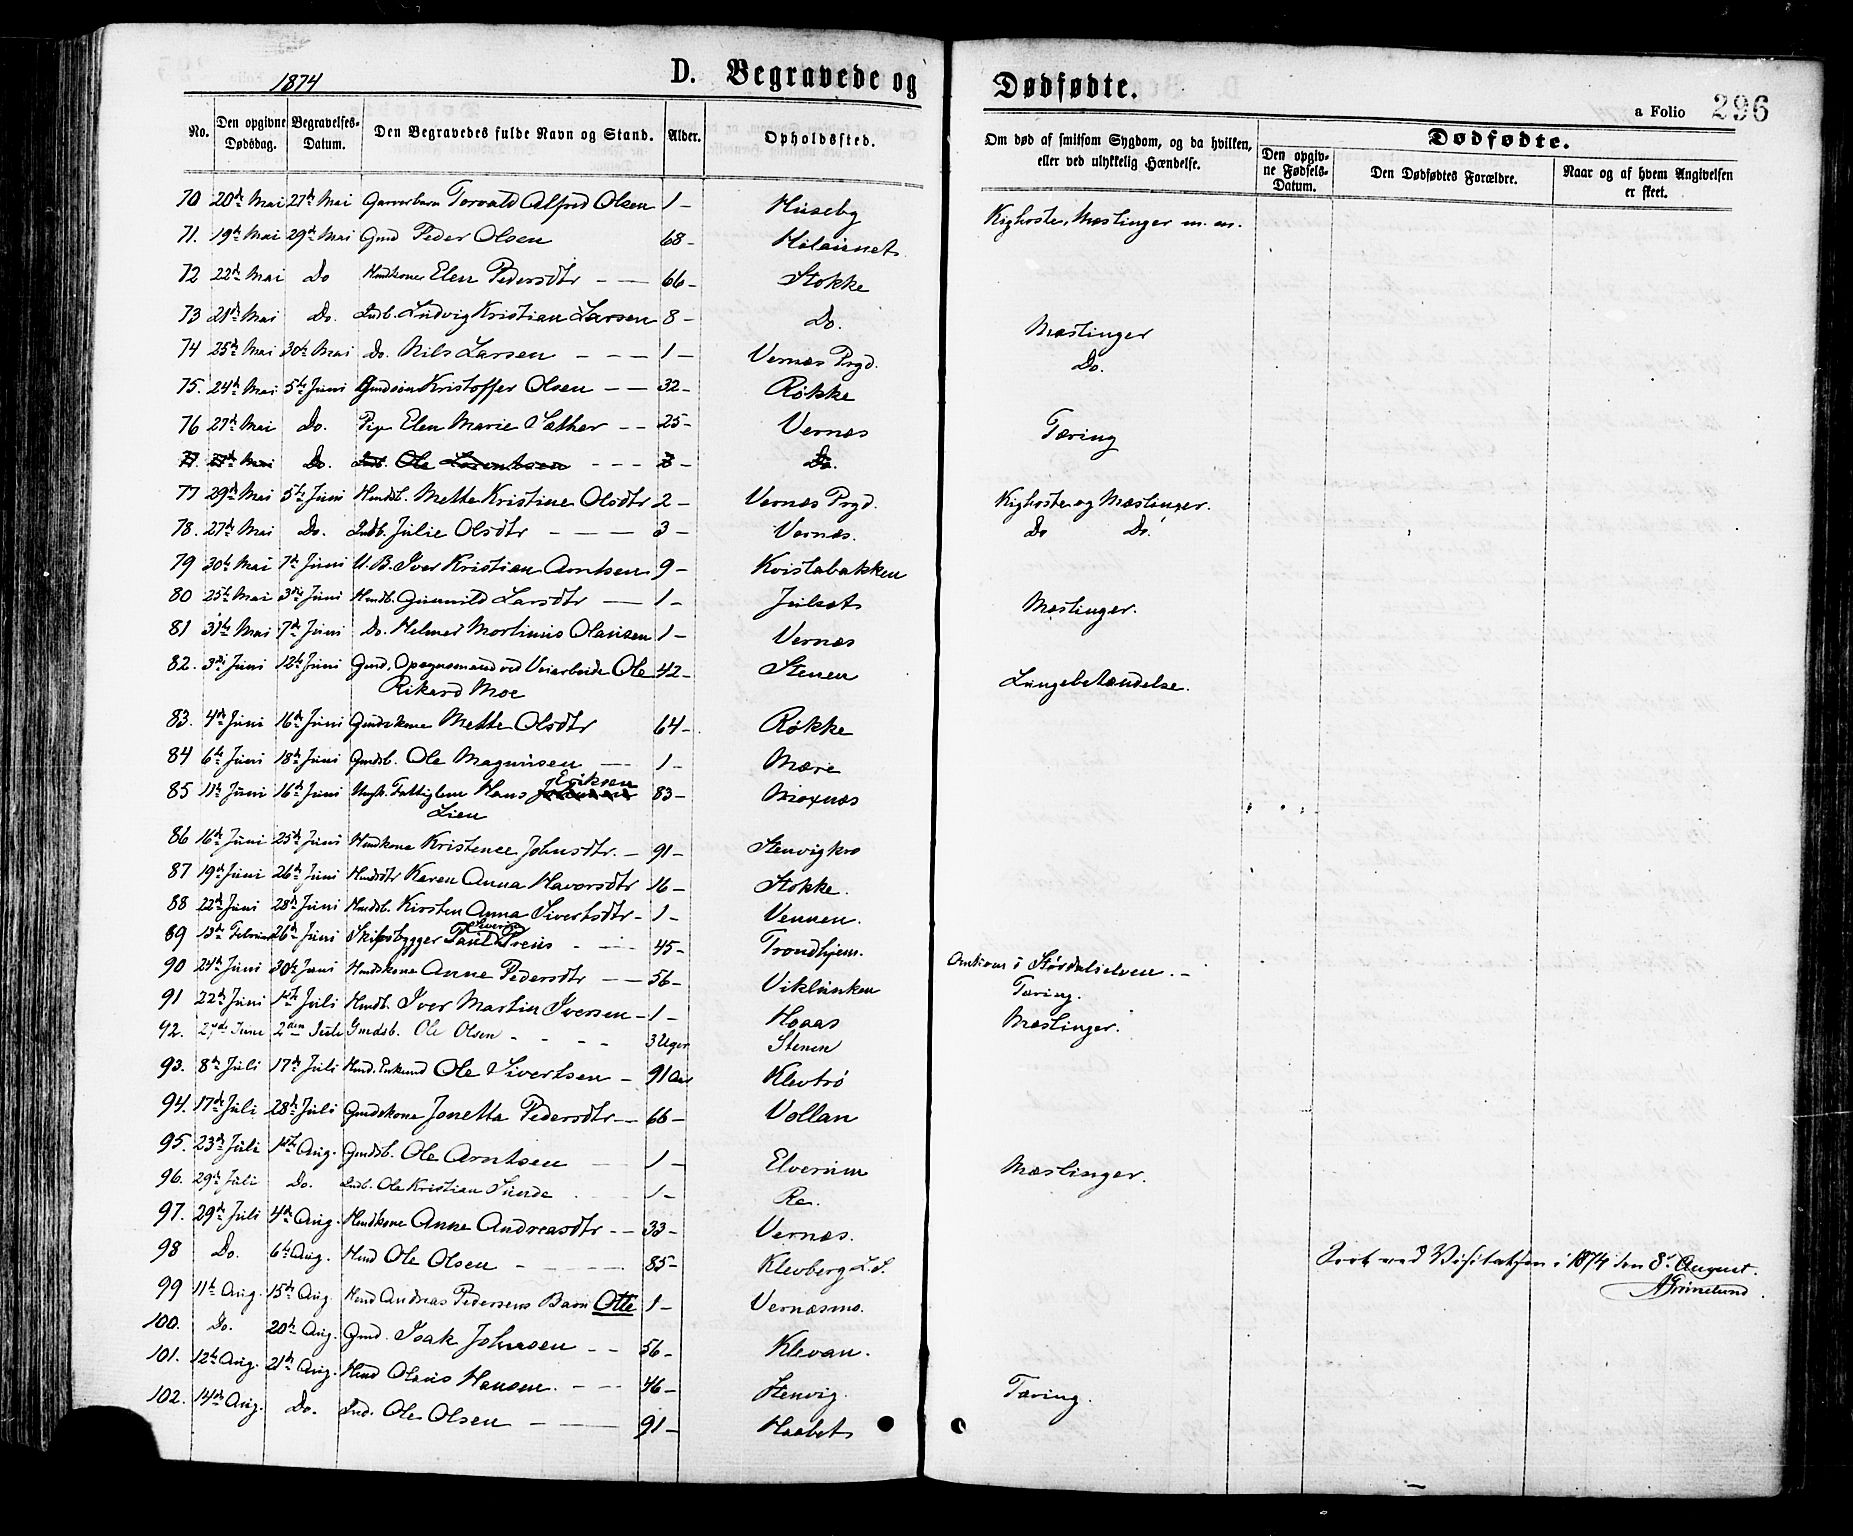 1874
D. Begravede og Dødfødte.
a Folio 296
No. Den opgivne Dødsdag. Begravelses-Datum. Den Begravedes fulde Navn og Stand. Alder. Opholdssted. Om død af smitsom Sygdom, og da hvilken, eller ved ulykkelig Hændelse. Dødfødte.
Den opgivne Fødsels-Datum. Den Dødfødtes Forældre. Naar og af hvem Angivelsen er skeet.
70 20de Mai 27de Mai Garverbarn Torvald Alfred Olsen 1 - Huseby Kighoste, Mæslinger m. m.
71. 19de Mai 29de Mai Gmd Peder Olsen 68 - Hilaunet
72 22de Mai Do Hmdkone Elen Pedersdtr 66 - Stokke
73 21de Mai Do. Indb. Ludvig Kristian Larsen 8 - Do. Mæslinger
74 25de Mai 30te Mai Do. Nils Larsen 1 - Vernæs Prgd. Do.
75. 24de Mai 5te Juni Gmdsøn Kristoffer Olsen 32 - Røkke
76 27de Mai Do. Pige Elen Marie Sæther 25 - Vernæs Tæring
77. 27de Mai Do. Indb. Ole Lorentsen - Do.
77 29de Mai 5te Juni Hmdsb. Mette Kristine Olsdtr 2 - Vernæs Prgd. Kighoste og Mæslinger.
78. 27de Mai Do. Indb. Julie Olsdtr 3 - Vernæs. Do Do.
79 30te Mai 7de Juni U. B. Iver Kristian Arntsen 9 - Kvistabakken
80 25te Mai 3die Juni Hmdb. Gunnild Larsdtr 1 - Julset Mæslinger.
81 31te Mai 7de Juni Do. Helmer Martinus Olausen 1 - Vernæs
82. 3die Juni 12te Juni Gmd. Opsynsmand ved Veiarbeide Ole 42 - Stenen Lungebetændelse.
Rikard Moe
83. 4de Juni 16de Juni Gmdskone Mette Olsdtr 64 - Røkke
84 6te Juni 18de Juni Gmdsb. Ole Magnusen 1 - Mære
85 11te Juni 16de Juni Ungk. Fattiglem Hans Eriksen 83 - Moxnæs
Lien
86 16de Juni 25de Juni Hmdkone Kristence Johnsdtr. 91 - Stenvigkro
87 19de Juni 26de Juni Hmdsdtr Karen Anna Havorsdtr 16 - Stokke.
88 22de Juni 28de Juni Hmdsb. Kirsten Anna Sivertsdtr 1 - Vennen.
89 13de Februar 26de Juni Skibsbygger Paul Severin Preus 45 - Trondhjem. Omkom i Størdalselven.
90 24de Juni 30te Juni Hmdskone Anne Pedersdtr 56 - Viklunken Tæring.
91 22de Juni 1ste Juli Hmdb. Iver Martin Iversen 1 - Hoaas Mæslinger.
92. 27de June 2den Jule Gmdsb. Ole Olsen 3 Uger Stenen
93. 8de Juli 17de Juli Hmd. Enkemd Ole Sivertsen 91 Aar Klevtrø
94. 17de Juli 28de Juli Gmdskone Jonetta Pedersdtr 66 - Vollan
95. 23de Juli 1ste Aug. Gmdsb. Ole Arntsen 1 - Elverum Mæslinger.
96. 29de Juli Do. Indb. Ole Kristian Sunde 1 - Re.
97. 29de Juli 4de Aug. Hmdkone Anne Andreasdtr 33 - Vernæs.
98 Do. 6te Aug. Hmd Ole Olsen 85 - Klevberg L. S.
Seet ved Visitatsen i 1874 den 8. August.
AGrimelund
99 11te Aug. 15de Aug. Hmd Andreas Pedersens Barn Otte 1 - Vernæsmo.
100. Do. 20de Aug. Gmd. Isak Johnsen 56 - Klevan.
101. 12te Aug. 21de Aug. Hmd Olaus Hansen. 46 - Stenvig. Tæring.
102. 14de Aug. Do. Ind. Ole Olsen 91 - Haabet